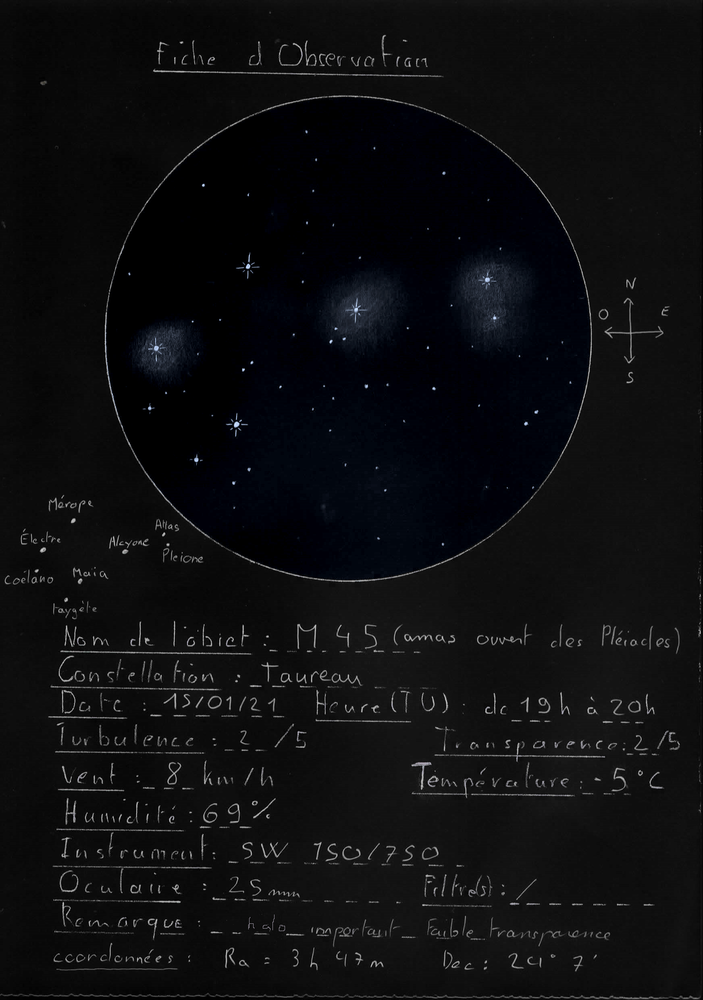 Fiche d'Observation
N
O E
S
Mérope
Atlas
Électre Alcyone
Pleione
Coelano Maïa
taygète
Nom de l'objet : M 45 (amas ouvert des Pléiades)
Constellation : Taureau
Date : 15/01/21 Heure (TU) : de 19h à 20h
Turbulence : 2 /5 Transparence : 2 /5
Vent : 8 km/h Température : -5°C
Humidité : 69%
Instrument : SW 150/750
Oculaire : 25mm Filtre(s) : /
Remarque : halo important Faible transparence
coordonnées : Ra = 3h 47m Dec : 24° 7'